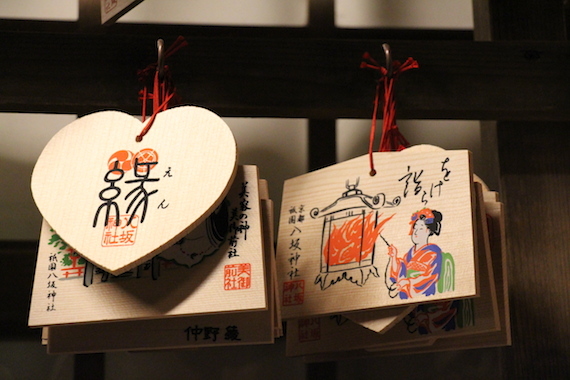 縁
えん
八坂
社
美容の神
美御前社
祇園八坂神社
美御
前社
仲野
をけら
詣
京都
祇園
八坂神社